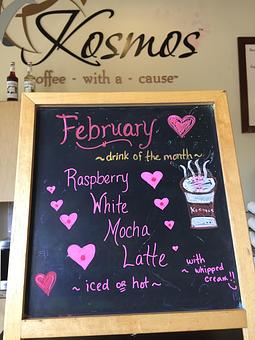 Kosmos
coffee - with a - cause~
February
~drink of the month~
Raspberry
White
Mocha
Latte
Kosmos
~ iced or hot ~
with
~ whipped
cream!!